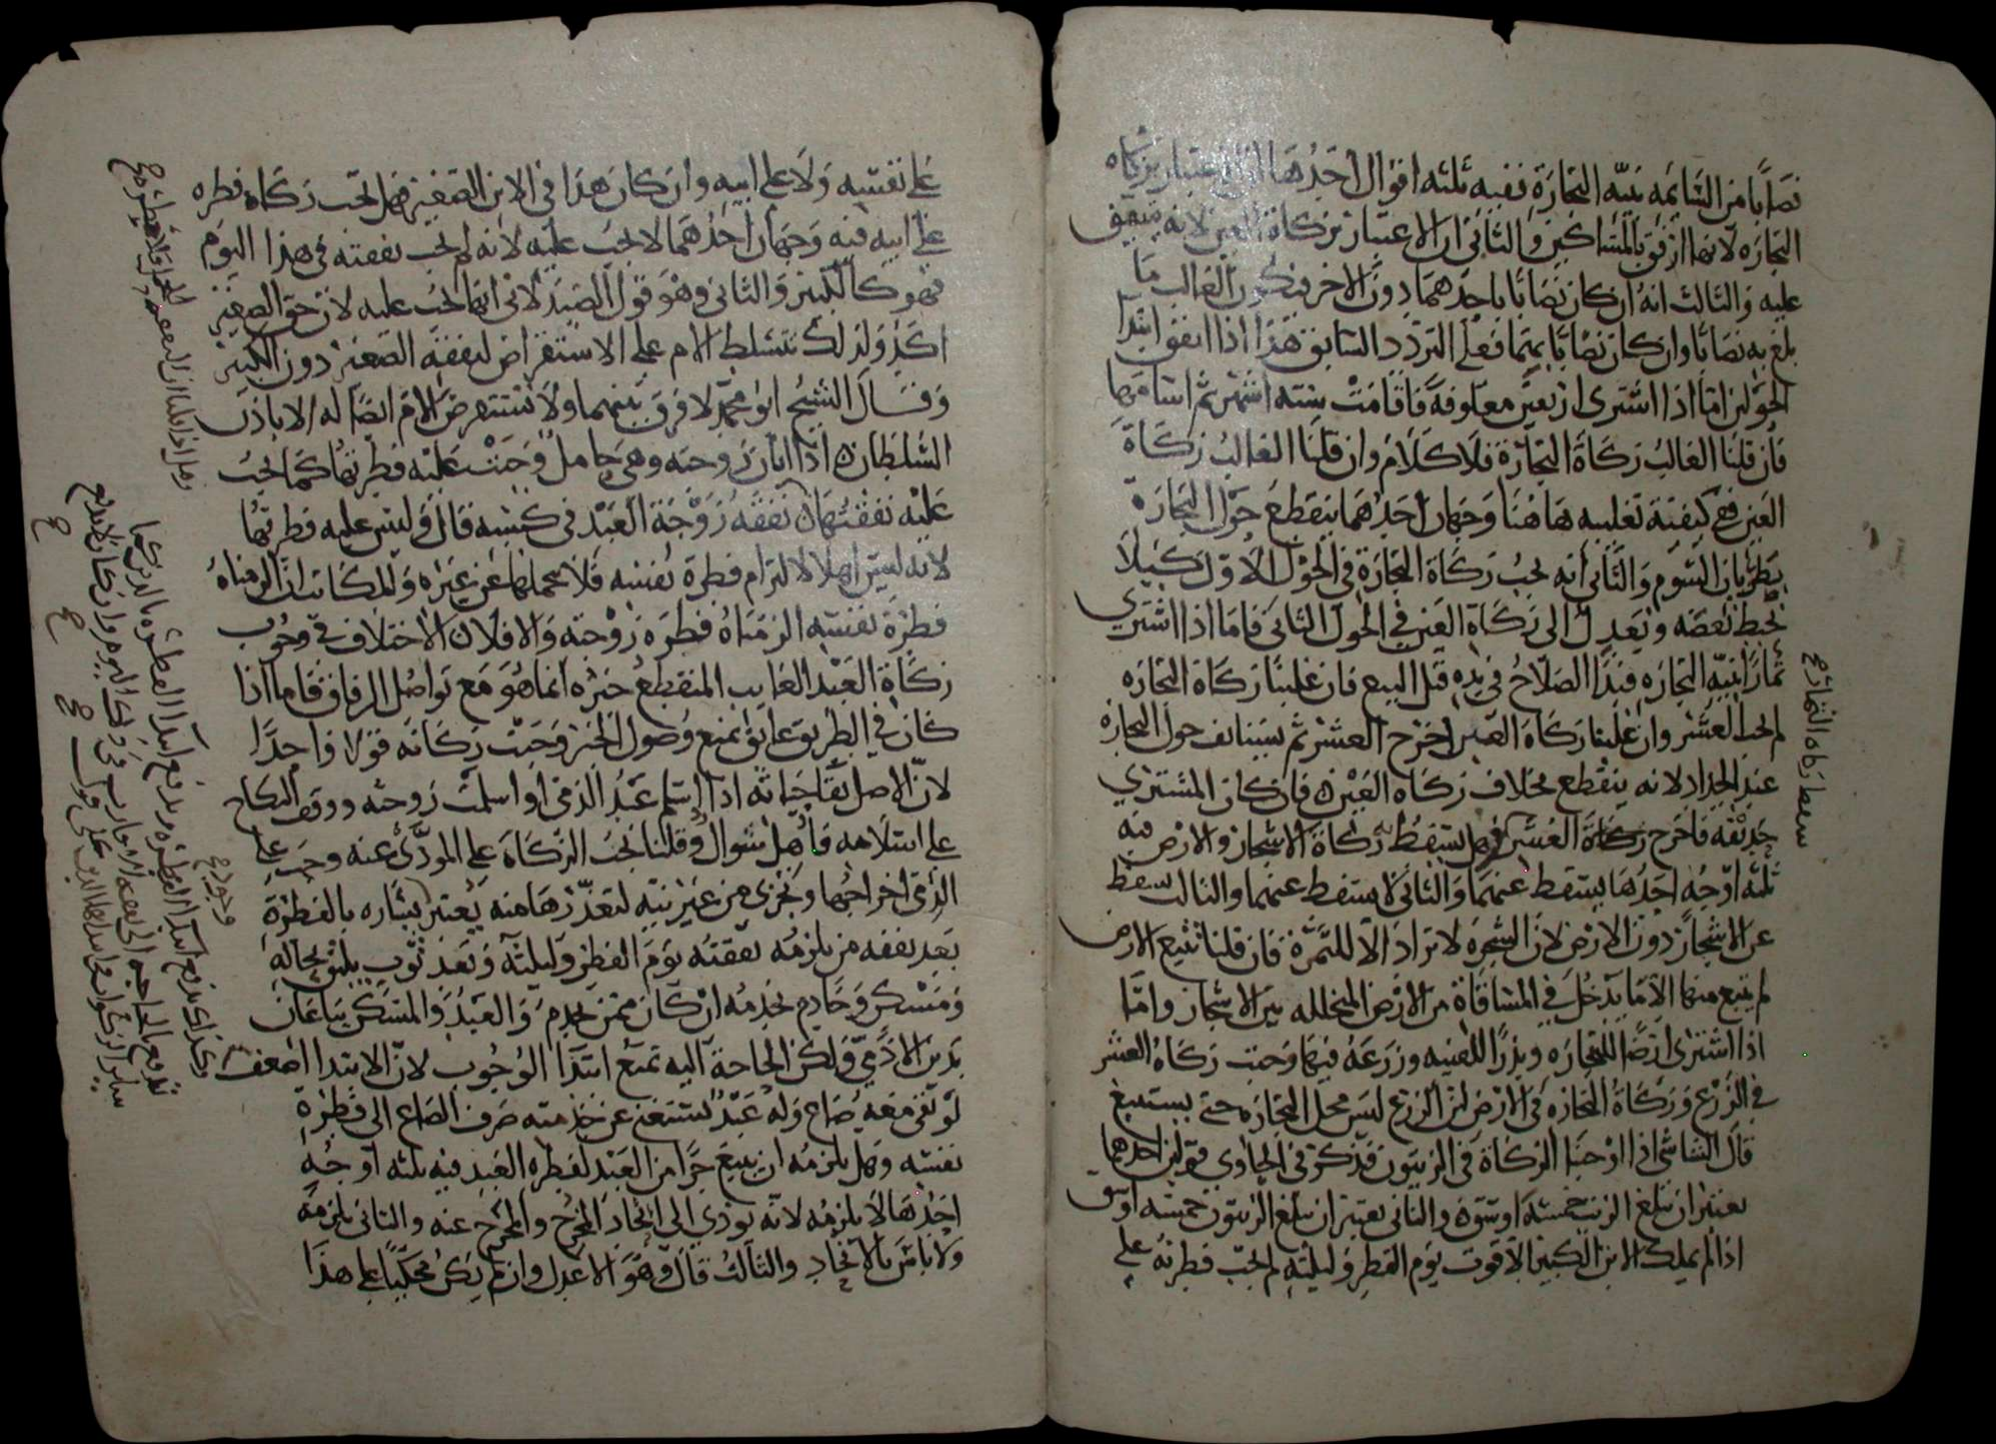 نصابا من السائمه بنيه التجارة ففيه ثلثه اقوال احدها ان الاعتبار بزكاه
التجاره لانها ارفق بالمساكين والثاني ان الاعتبار بزكاة العين لانه متفق
عليه والثالث انه ان كان نصابا باحدهما دون الاخر فيكون الغالب ما
بلغ به نصابا وان كان نصابا بهما فعلى التردد السابق هذا اذا اتفق ابتدا
الحولين اما اذا اشترى اربعين معلوفة فاقامت سته اشهر ثم اسامها
فان قلنا الغالب زكاة التجارة فلا كلام وان قلنا الغالب زكاة
العين ففي كيفية تغليبه هاهنا وجهان احدهما ينقطع حول التجارة
بطريان السوم والثاني انه تجب زكاة التجارة في الحول الاول كيلا
يحبط بعضه ويعدل الى زكاة العين في الحول الثاني فاما اذا اشترى
ثمارا بنيه التجاره فبدا الصلاح في يده قبل البيع فان غلبنا زكاة التجاره
لم يجب العشر وان غلبنا زكاة العين اخرج العشر ثم يستانف حول التجارة
عند الجداد لانه ينقطع بخلاف زكاه العين فان كان المشتري
حديقه فاخرج زكاة العشر فهل يسقط زكاة الاشجار والارض فيه
ثلثه اوجه احدها يسقط عنهما والثاني لا يسقط عنهما والثالث يسقط
عن الاشجار دون الارض لان الشجره لا تراد الا للثمرة فان قلنا تتبع الارض
لم يتبع منها الا ما يدخل في المساقاة من الارض المتخلله بين الاشجار واما
اذا اشترى ارضا للتجاره وبذرا للقنيه وزرعه فيها وجبت زكاة العشر
في الزرع وزكاة التجاره في الارض لان الزرع ليس محل التجاره حتى يستتبع
قال الشاشي اذا اوجبنا الزكاة في الزيتون فقد ذكر في الحاوي قولين احدهما
يعتبر ان يبلغ الزيت خمسة اوسق والثاني يعتبر ان يبلغ الزيتون خمسه اوسق
اذا لم يملك الابن الكبير الا قوت يوم الفطر وليلته لم تجب فطرته على
سقط زكاه التجاره
على نفسه ولا على ابيه وان كان هذا في الابن الصغير فهل تجب زكاه فطره
على ابيه فيه وجهان احدهما لا تجب عليه لانه لم تجب نفقته في هذا اليوم
فهو كالكبير والثاني وهو قول الصيدلاني انها تجب عليه لان حق الصغير
اكد ولذلك تتسلط الام على الاستقراض لنفقة الصغير دون الكبير
وقال الشيخ ابو محمد لا فرق بينهما ولا تستقرض الام ايضا له الا باذن
السلطان اذا ابان زوجته وهي حامل وجبت عليه فطرتها كما تجب
عليه نفقتها نفقة زوجة العبد في كسبه قال وليس عليه فطرتها
لانه ليس اهلا لالتزام فطرة نفسه فلا يحملها عن غيره والمكاتب ان الزمناه
فطرة نفسه الزمناه فطره زوجته والا فلا الاختلاف في وجوب
زكاة العبد الغايب المنقطع خبره انما هو مع تواصل الرفاق فاما اذا
كان في الطريق عايق يمنع وصول الخبر وجبت زكاته قولا واحدا
لان الاصل بقا حياته اذا اسلم عبد الذمي او اسلمت زوجته ووقف النكاح
على اسلامه فاهل شوال وقلنا تجب الزكاة على المودى عنه وجب على
الذمي اخراجها وتجزى من غير نيه لتعذرها منه يعتبر يساره بالفطرة
بعد نفقه من يلزمه نفقته يوم الفطر وليلته وبعد ثوب يليق بحاله
ومسكن وخادم يخدمه ان كان ممن يخدم والعبد والمسكن يباعان
بدين الادمي ولكن الحاجة اليه تمنع ابتدا الوجوب لان الابتدا اضعف
لو بقي معه صاع وله عبد يستغني عن خدمته صرف الصاع الى فطرة
نفسه وهل يلزمه ان يبيع جزا من العبد لفطره العبد فيه ثلثه اوجه
احدها لا يلزمه لانه يودي الى اتحاد المخرج والمخرج عنه والثاني يلزمه
ولا باس بالاتحاد والثالث قال وهو الاعدل وان لم يكن محكيا على هذا